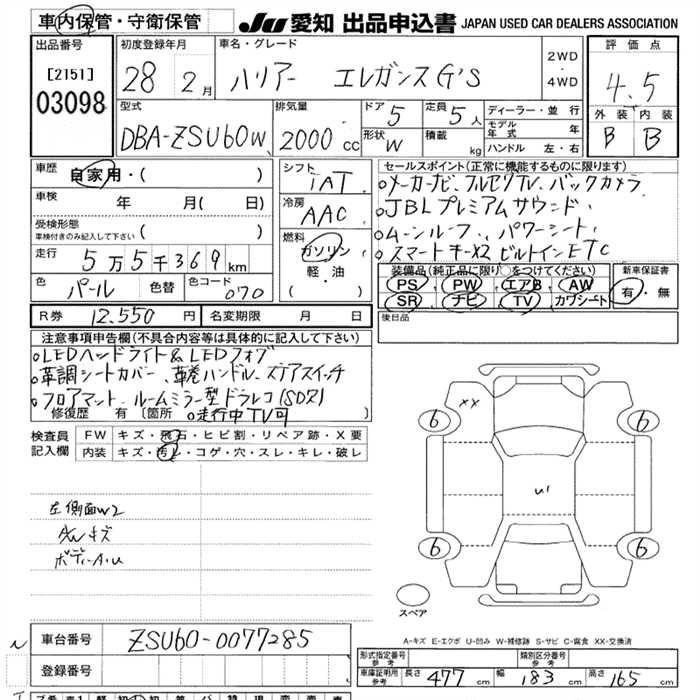 車内保管・守衛保管
JU 愛知 出品申込書 JAPAN USED CAR DEALERS ASSOCIATION
出品番号 初度登録年月 車名・グレード 評価点
[2151] 28 2月 ハリアー エレガンスG'S 2WD・4WD 4.5
03098 外装 内装
型式 排気量 ドア 5 定員 5人 ディーラー・並行 B B
DBA-ZSU60W 2000cc 形状 W 積載 kg モデル年式 年
ハンドル 左・右
車歴 自家用・( ) シフト iAT セールスポイント(正常に機能するものに限ります)
車検 年 月( 日) 冷房 AAC 。メーカーナビ、フルセグTV、バックカメラ
受検形態 ( ) 。JBLプレミアムサウンド、
車検付きのみ記入して下さい
燃料 ガソリン・軽・油 ( ) 。ムーンルーフ、パワーシート、
走行 5万5千369km 。スマートキーX2 ビルトインETC
色 パール 色替 色コード 070 装備品(純正品に限り○をつけてください) 新車保証書
PS PW エアB AW 有・無
SR ナビ TV カワシート
R券 12.550円 名変期限 月 日 後日品
注意事項申告欄(不具合内容等は具体的に記入して下さい)
。LEDヘッドライト&LEDフォグ
。革調シートカバー、革巻ハンドル、ステアスイッチ
。フロアマット、ルームミラー型ドラレコ(SDヌケ)
修復歴 有 [箇所 。走行中TV可
検査員記入欄 FW キズ・飛石・ヒビ割・リペア跡・X要
内装 キズ・汚れ・コゲ・穴・スレ・キレ・破レ
XX
6 6
U1
6 6
左側面W2
AWキズ
ボディーA・U
スペア
A-キズ E-エクボ U-凹み W-補修跡 S-サビ C-腐食 XX-交換済
車台番号 ZSU60-0077285
登録番号
形式指定番号 参考 類別区分番号 参考
車庫証明用 参考 長さ 477cm 幅 183cm 高さ 165cm